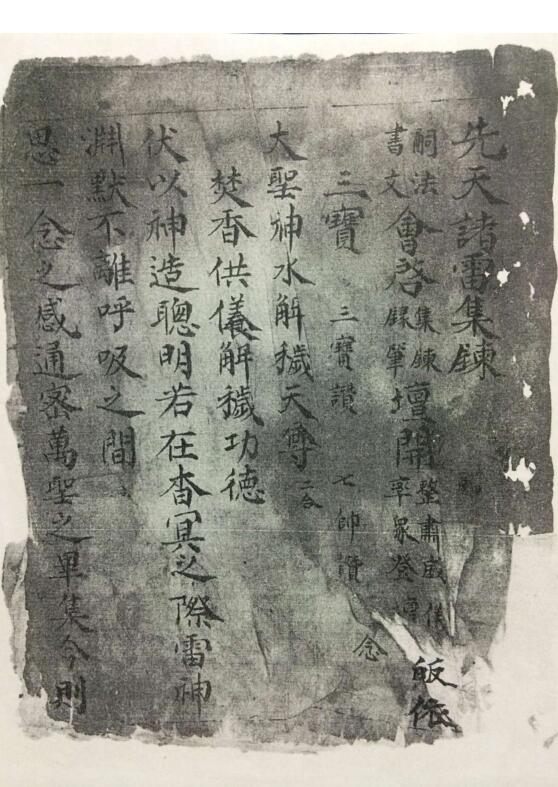 先天諸雷集鍊
嗣法書文會啓集鍊壇開整肅威儀率眾登壇皈依
三寶 三寶讚 七帥讚 念
大聖神水解穢天尊 二合
焚香供儀解穢功德
伏以神造聰明若在杳冥之際雷神
淵默不離呼吸之間
思一念之感通密萬聖之畢集今則